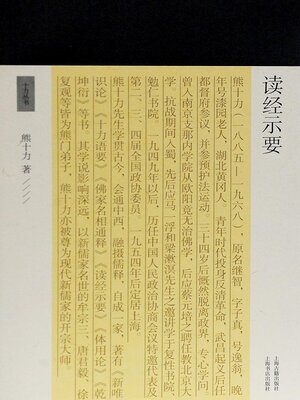 读经示要
十力丛书
熊十力 著
熊十力（一八八五—一九六八），原名继智，字子真，号逸翁，晚
年号漆园老人，湖北黄冈人。青年时代投身反清革命，武昌起义后任
都督府参议，并参预护法运动。三十四岁后慨然脱离政界，专心学问。
曾入南京支那内学院从欧阳竟无治佛学，后应蔡元培之聘任教北京大
学。抗战期间入蜀，先后应马一浮和梁漱溟先生之邀讲学于复性书院、
勉仁书院。一九四九年以后，历任中国人民政治协商会议特邀代表及
第二、三、四届全国政协委员，一九五四年后定居上海。
熊十力先生学贯古今，会通中西，融摄儒释，自成一家，著有《新唯
识论》《十力语要》《佛家名相通释》《读经示要》《体用论》《乾
坤衍》等书，其学说影响深远，以新儒家名世的牟宗三、唐君毅、徐
复观等皆为熊门弟子，熊十力亦被尊为现代新儒家的开宗大师
上海古籍出版社
上海书店出版社